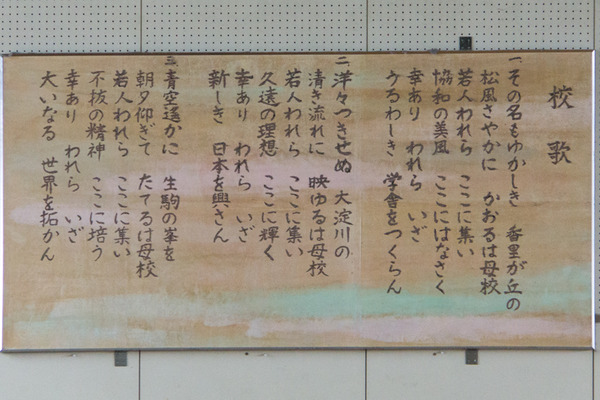 校歌
一、その名もゆかしき　香里が丘の
松風さやかに　かおるは母校
若人われら　ここに集い
協和の美風　ここにはなさく
幸あり　われら　いざ
うるわしき　学舎をつくらん
二、洋々つきせぬ　大淀川の
清き流れに　映ゆるは母校
若人われら　ここに集い
久遠の理想　ここに輝く
幸あり　われら　いざ
新しき　日本を興さん
三、青空遥かに　生駒の峯を
朝夕仰ぎて　たてるは母校
若人われら　ここに集い
不抜の精神　ここに培う
幸あり　われら　いざ
大いなる　世界を拓かん